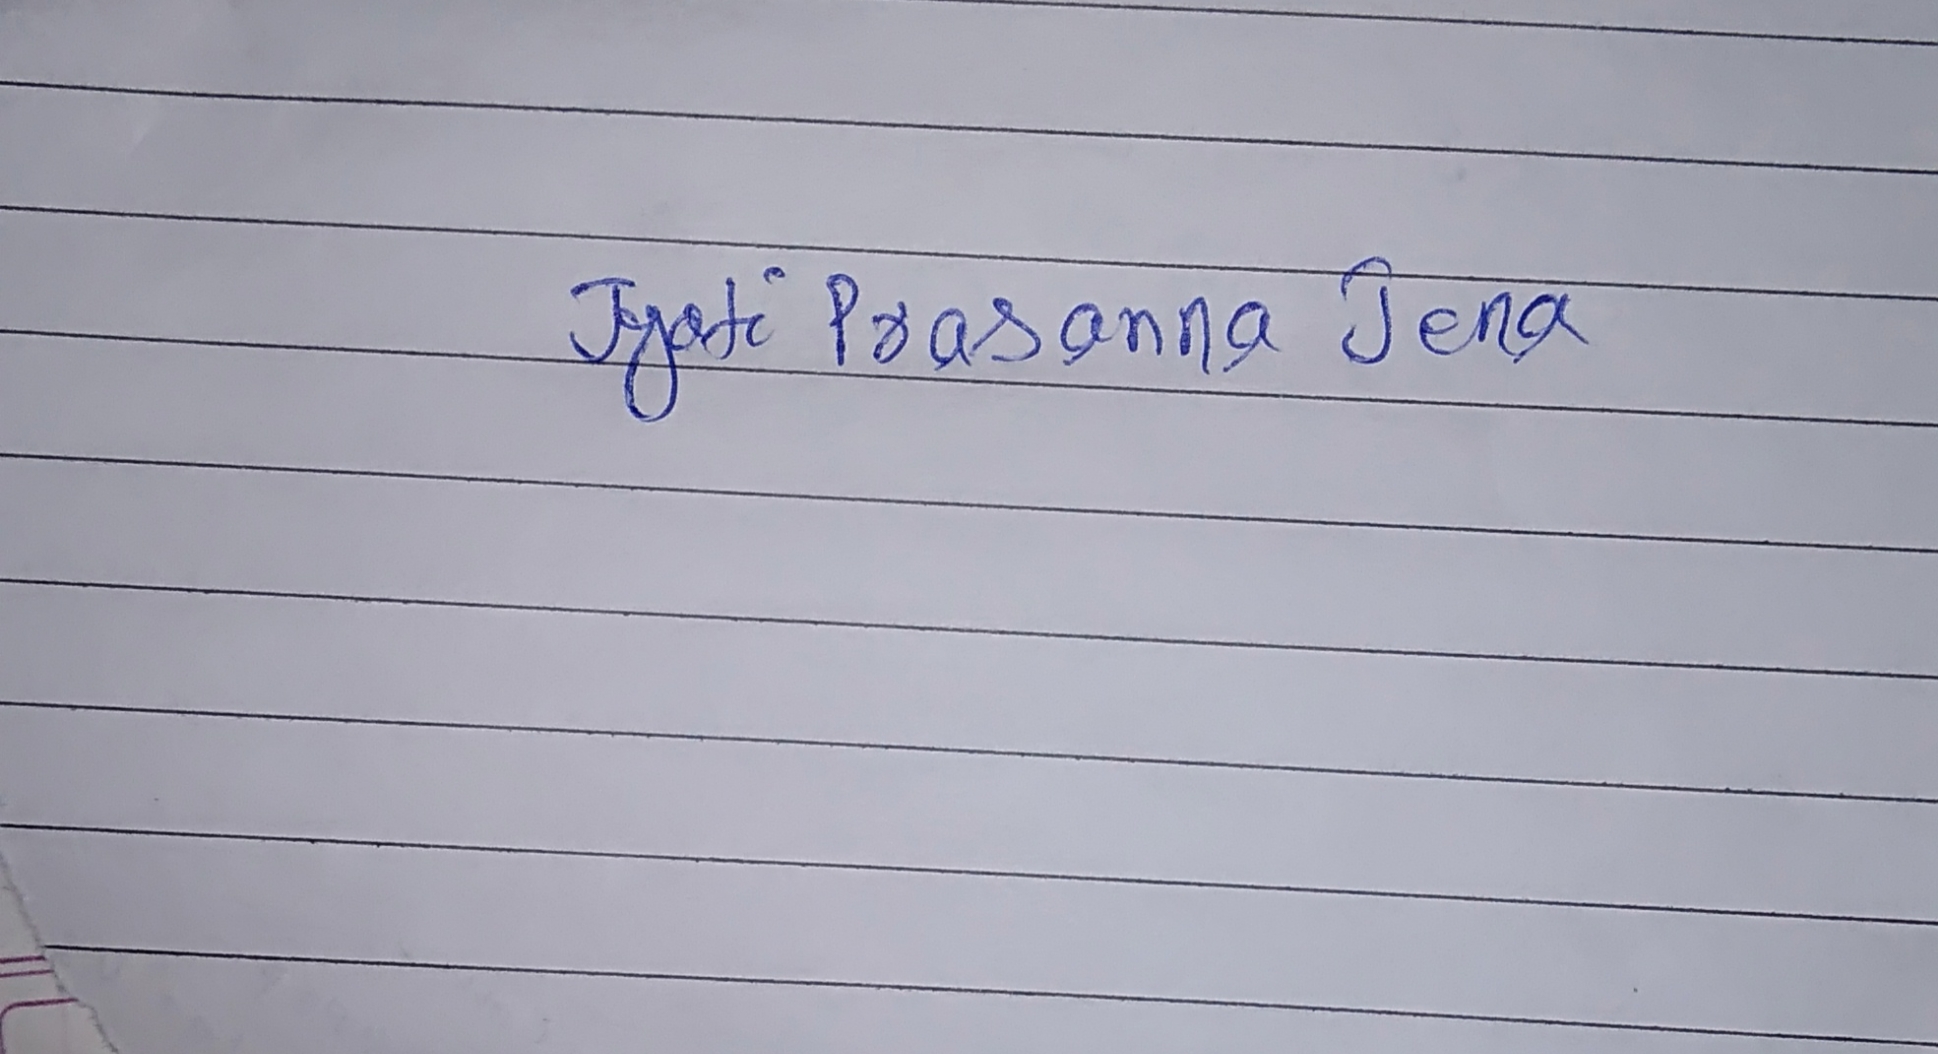 Jyoti Prasanna Jena